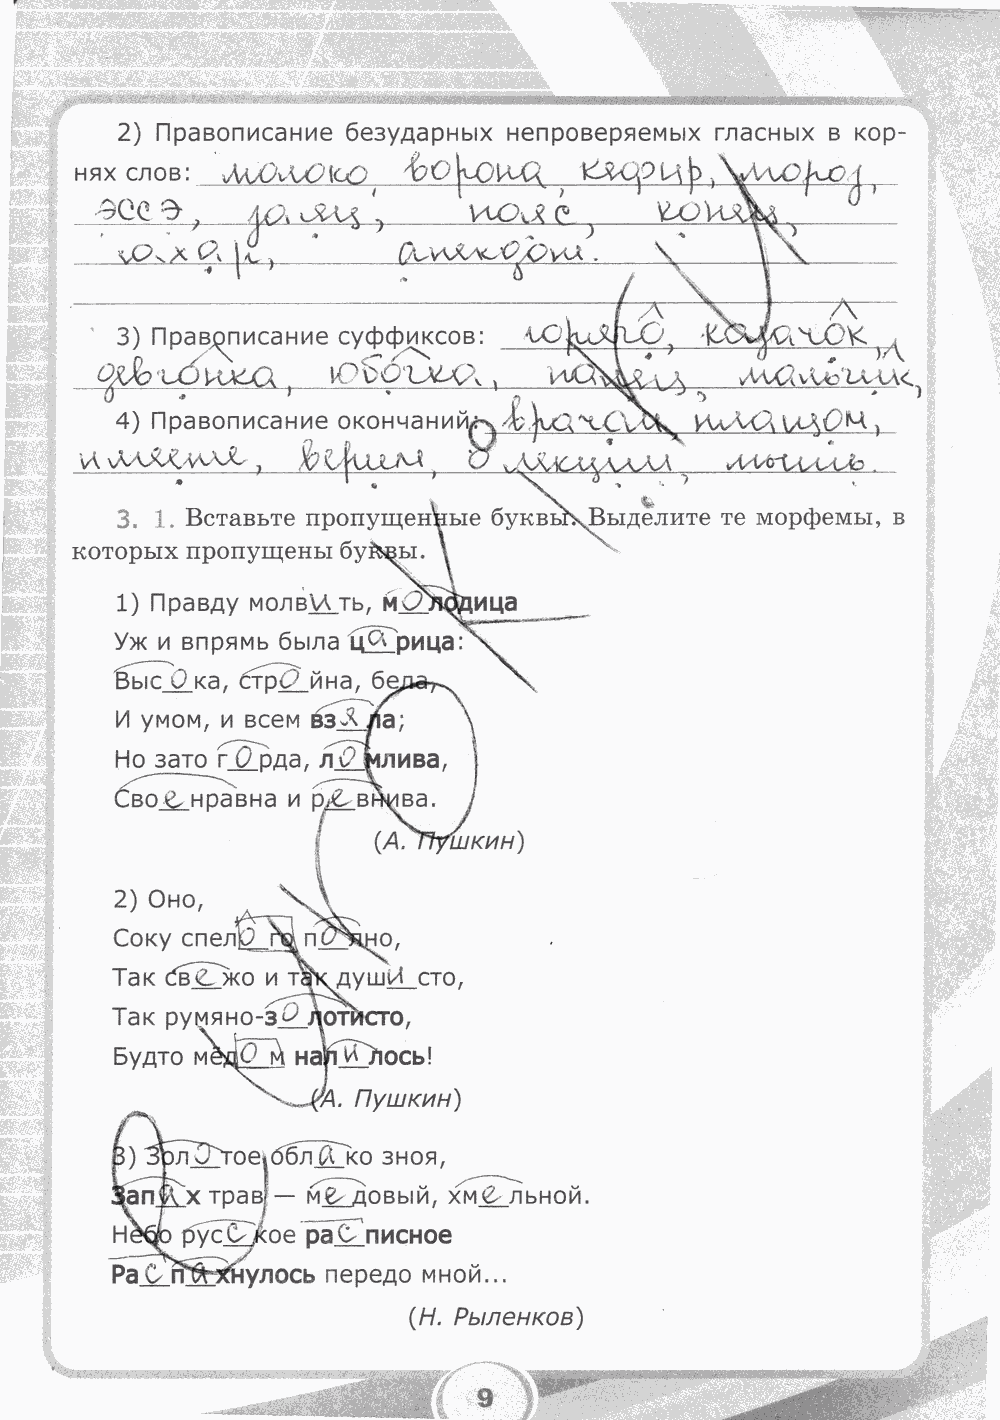 2) Правописание безударных непроверяемых гласных в кор-
нях слов: молоко, ворона, кефир, мороз,
эссэ, заяц, пояс, конец,
сахар, анекдот.
3) Правописание суффиксов: горячо, казачок,
девчонка, юбочка, палец, мальчик,
4) Правописание окончаний: врачом, плащом,
имеете, верим, о лекции, мышь.
3. 1. Вставьте пропущенные буквы. Выделите те морфемы, в
которых пропущены буквы.
1) Правду молвить, молодица
Уж и впрямь была царица:
Высока, стройна, бела,
И умом, и всем взяла;
Но зато горда, ломлива,
Своенравна и ревнива.
(А. Пушкин)
2) Оно,
Соку спелого полно,
Так свежо и так душисто,
Так румяно-золотисто,
Будто мёдом налилось!
(А. Пушкин)
3) Золотое облако зноя,
Запах трав — медовый, хмельной.
Небо русское расписное
Распахнулось передо мной...
(Н. Рыленков)
9